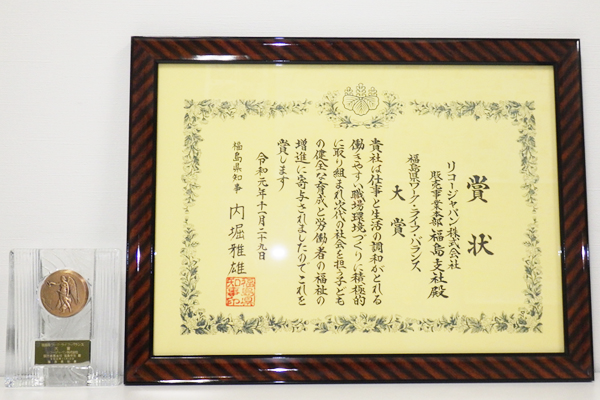 賞状
リコージャパン株式会社
販売事業本部 福島支社殿
福島県ワーク・ライフ・バランス
大賞
貴社は仕事と生活の調和がとれる
働きやすい職場環境づくりに積極的
に取り組まれ次代の社会を担う子ども
の健全な育成と労働者の福祉の
増進に寄与されましたのでこれを
賞します
令和元年十一月二十九日
福島県知事 内堀雅雄